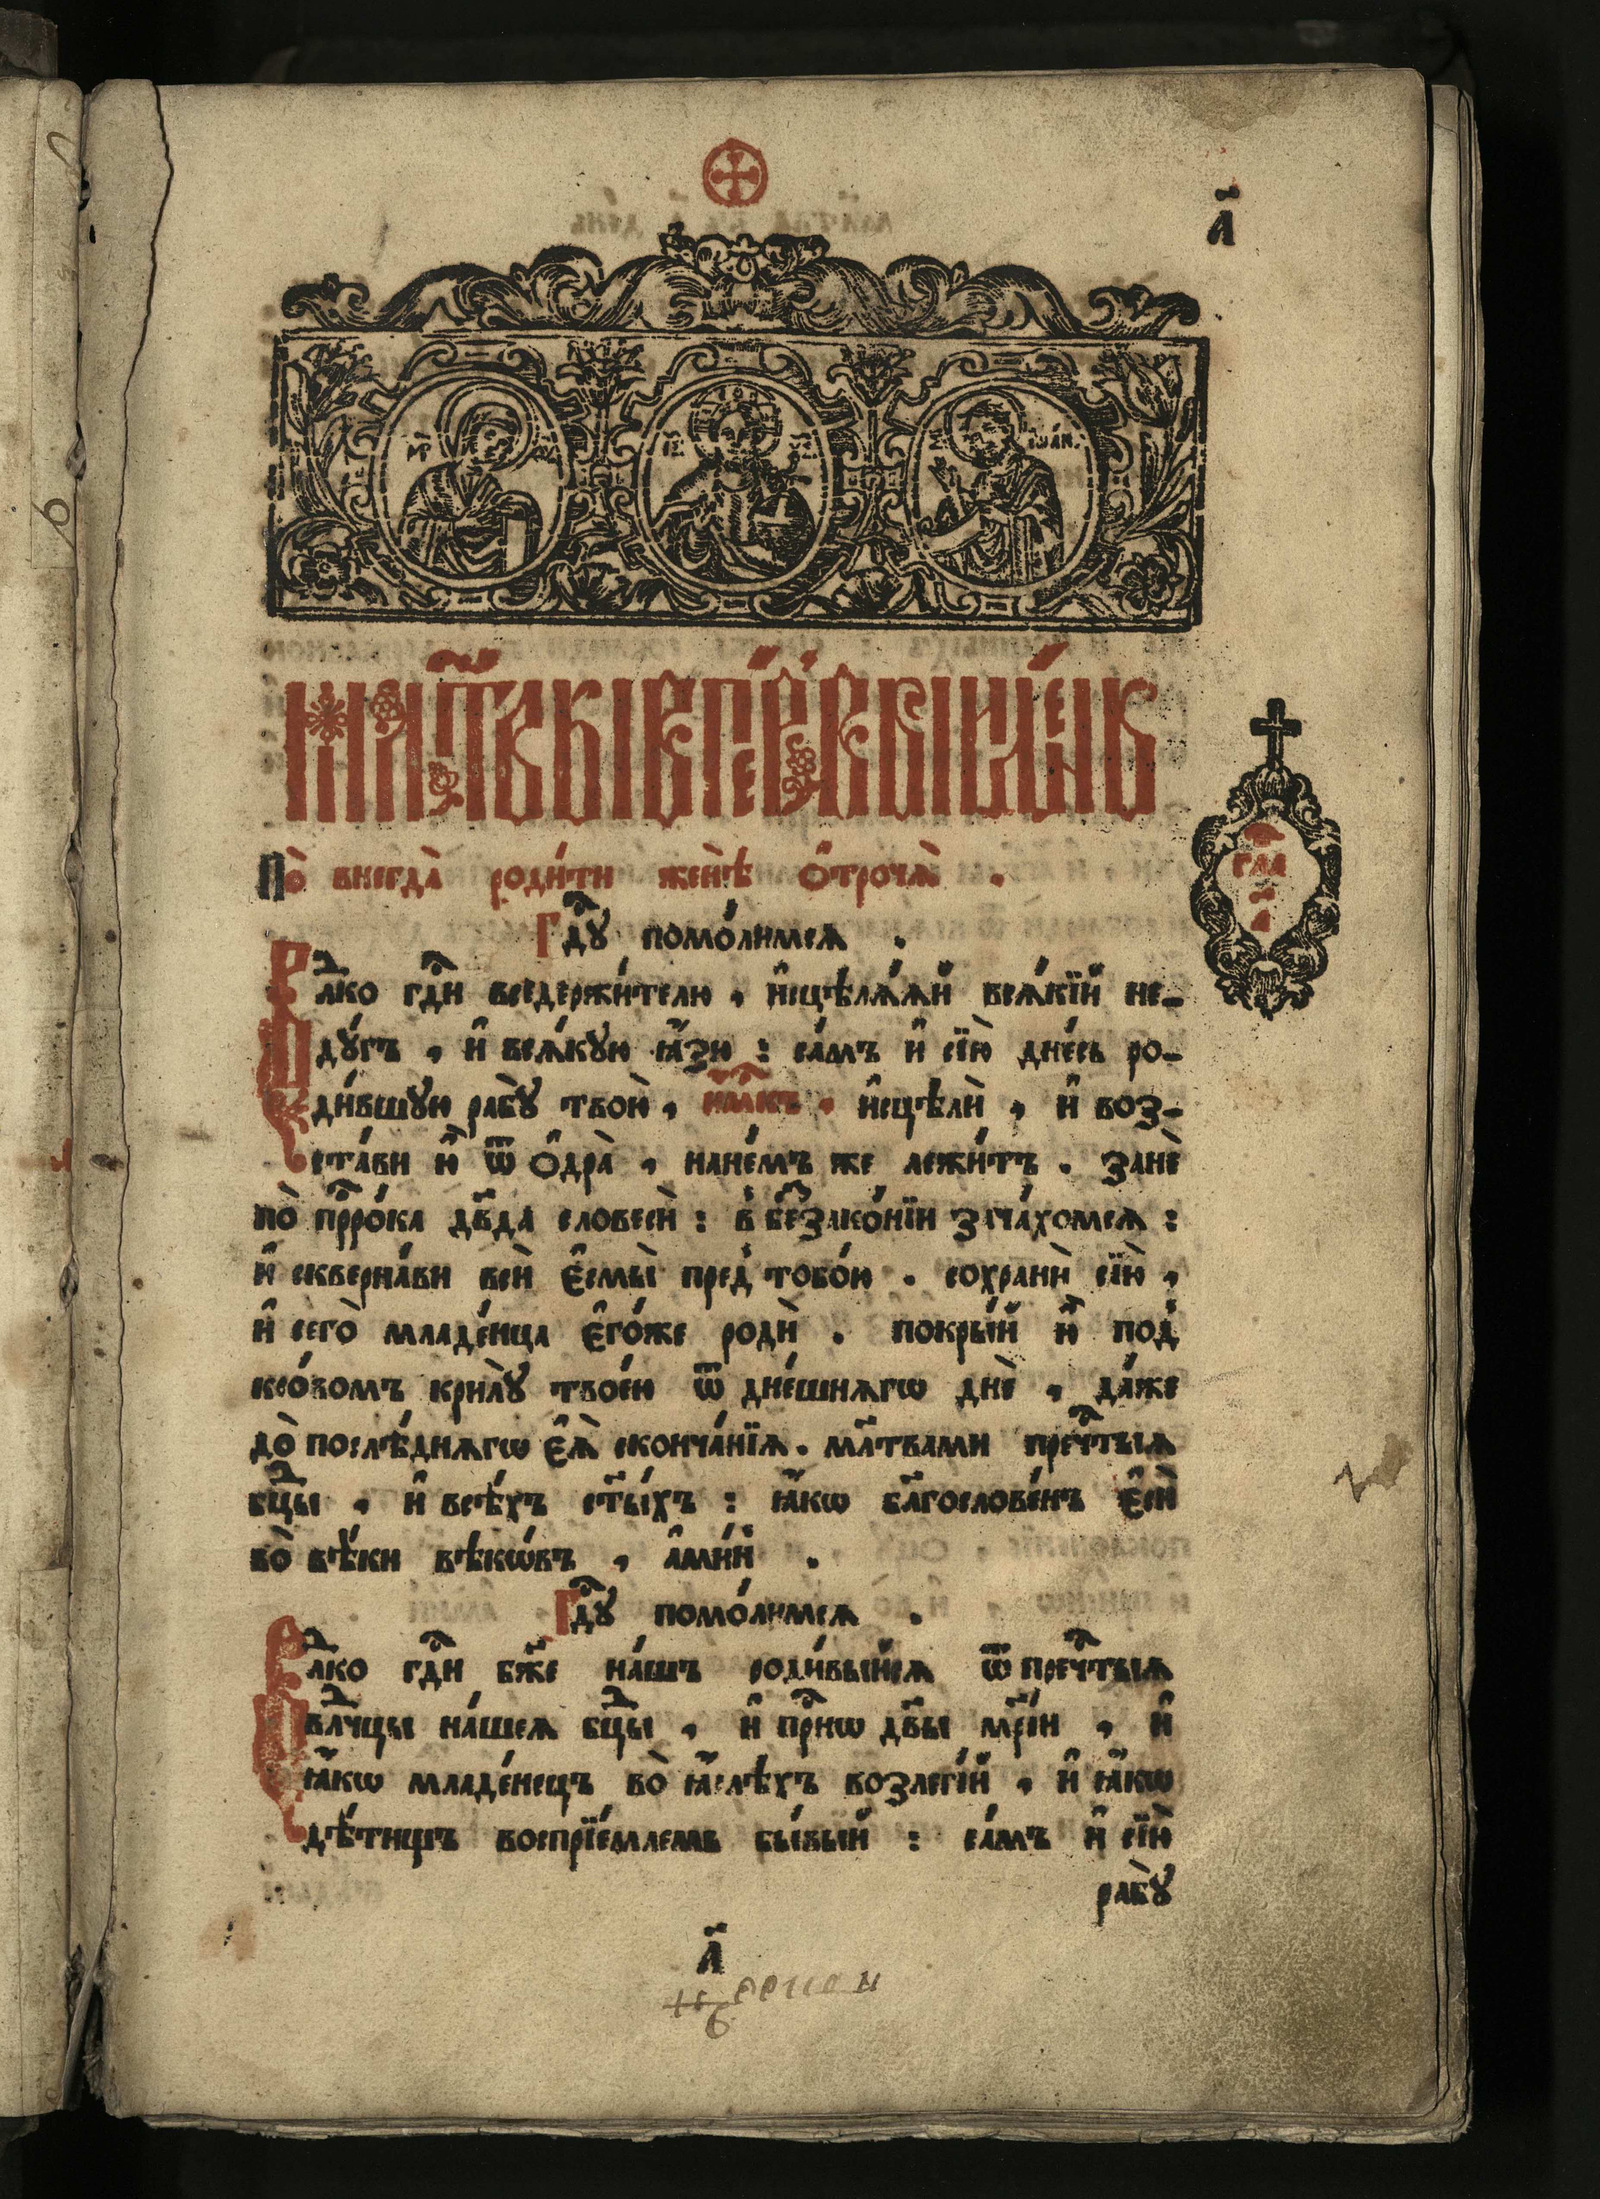 а҃
МР ІС ХС ІѠАН
мл҃твы в пе́рвый де́нь
По̀ внегда̀ роди́ти женѣ̀ ѻ҆троча̀ .
Гдⷭ҇ꙋ помо́лимсѧ .
гла
а҃
Влⷣко гдⷭ҇и вседержи́телю , и҆сцѣлѧ́ѧй всѧ́кїй не-
дꙋ́гъ , и҆ всѧ́кꙋю ꙗ҆́зю : са́мъ и҆ сїю̀ дне́сь ро-
ди́вшꙋю рабꙋ̀ твою̀ , и҆м҃къ , и҆сцѣлѝ , и҆ воз-
ста́ви ю҆̀ ѿ ѻ҆дра̀ , нане́мъ же лежи́тъ . занѐ
по̀ прⷪ҇ро́ка дв҃да словесѝ : в̾ беззако́нїи зача́хомсѧ :
и҆ скверна́ви всѝ є҆смы̀ пред̾ тобо́ю . сохранѝ сїю̀ ,
и҆ сего̀ младе́нца є҆го́же родѝ . покры́й ю҆̀ под̾
кро́вомъ крилꙋ̀ твое́ю ѿ дне́шнѧгѡ днѐ , да́же
до̀ послѣ́днѧгѡ є҆ѧ̀ сконча́нїѧ . мл҃твами пречⷭ҇тыѧ
бцⷣы , и҆ всѣ́хъ ст҃ы́хъ : ꙗ҆́кѡ бл҃гослове́нъ є҆сѝ
во̀ вѣ́ки вѣкѡ́въ , а҆ми́нь .
Гдⷭ҇ꙋ помо́лимсѧ .
Влⷣко гдⷭ҇и бж҃е на́шъ роди́выйсѧ ѿ пречⷭ҇тыѧ
влⷣчцы на́шеѧ бцⷣы , и҆ прⷭ҇нѡ дв҃ы мр҃і́и , и҆
ꙗ҆́кѡ младе́нецъ во̀ ꙗ҆́слѣхъ возлегі́й , и҆ ꙗ҆́кѡ
дѣ́тищъ воспрїе́млемь бы́вый : са́мъ и҆ сїю̀
рабꙋ̀
а҃